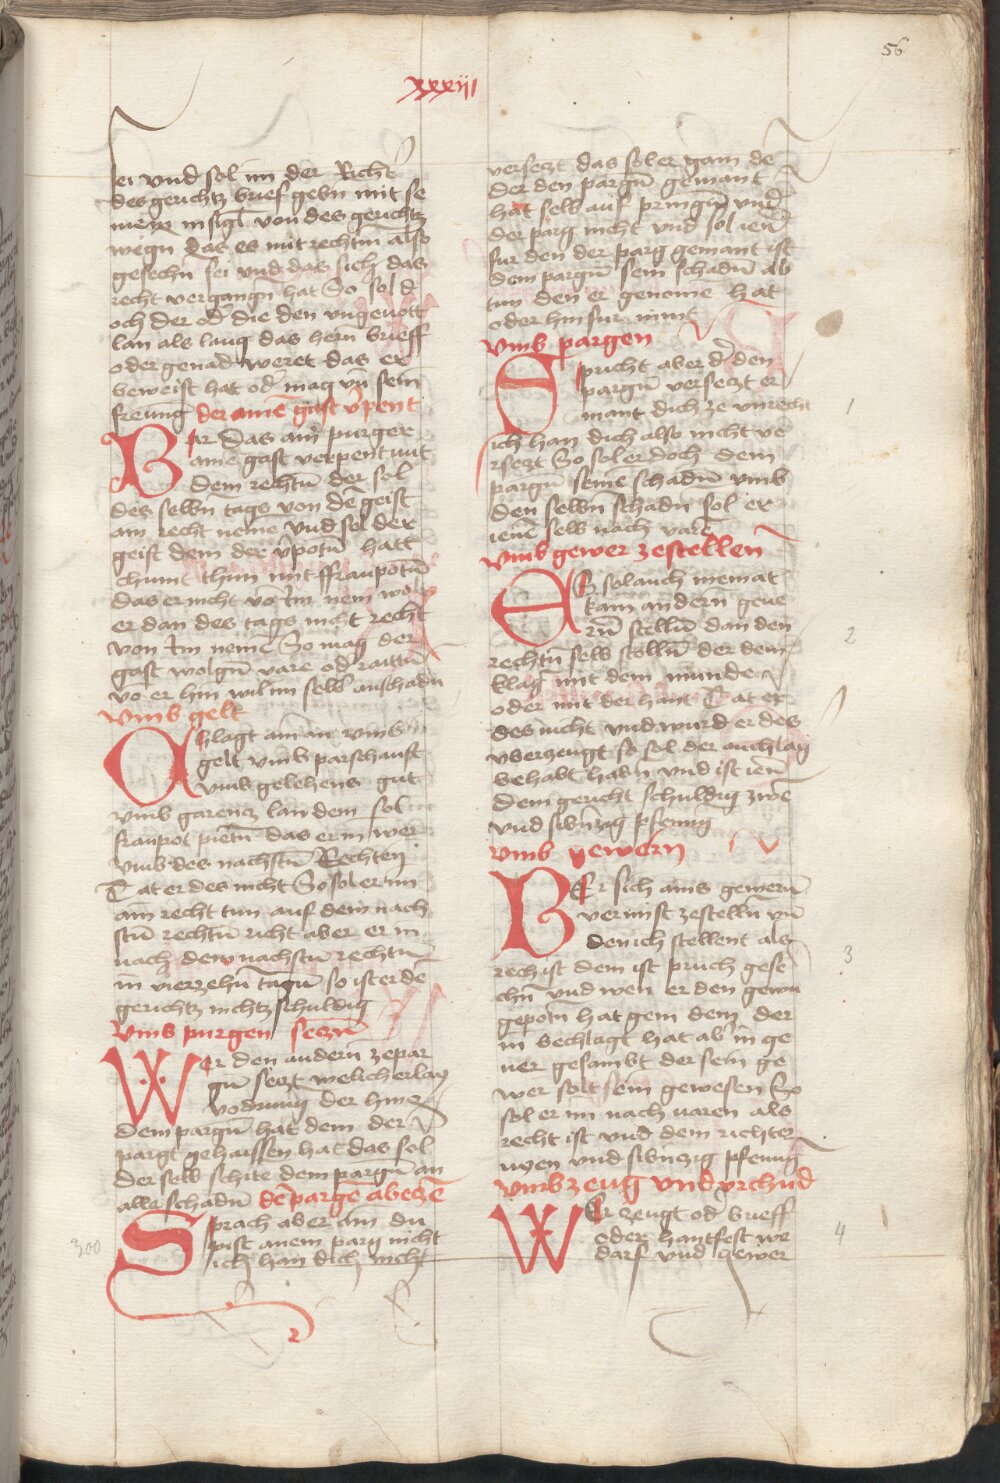 56
xxxiii
sei vnd sol im der Richt
des gerichtz brief gebn mit se
nem insigl von des gerichtz
wegn das es mit rechtm also
geschehn sei vnd das sich das
recht vergangn hat So sol d
och der od die den vngenott
lan als lang das hern brieff
oder genad weret das er
beweist hat od mag vn sein
freung der ame gast vpent
Er das am purger
ame gast verpent mit
dem rechtn der sol
des selbn tags von de geist
am recht neme vnd sol der
geist dem der vpotn hatt
chumt thun mit ffranpotn
das er nicht vo im nem wol
er dan des tags nicht recht
von Im neme So mag der
gast wolgn vare od raittn
vo er hin wil im selb anschadn
vmb gelt
klagt am an vmb
gelt vmb parschaft
vmb gelehens gut
vmb garencz lan dem sol
franpot pietn das er in wer
vmb des nachstn Rechten
Tat er des nicht So sol er im
am recht tun auf dem nach
stn rechtn richt aber er in
nach dem nachstn rechtn
in vierzehn tagn so ist er de
gerichtz nichtz schuldig
vmb purgen seczn
Wer den andern ze par
gn seczt welicherlay
vodrung der hincz
dem pargn hat dem der
pargt gehaissen hat das sol
der selb schite dem pargn an
alle schadn de parge abecze
Sprach aber am du
pist anem parg nicht
ich han dich nicht
300
verseczt das sol er gam de
der den pargn gemant
hat selb auf pringn vnd
der parg nicht vnd sol ien
fur den der parg gemant ist
dem pargn sein schadn ab
tun den er genome hat
oder hinfur nimt
vmb pargen
Spricht aber d den
pargn verseczt er
mant dich ze vnrecht
1
ich han dich also nicht ve
rseczt So sol er doch dem
pargn seine schadn vmb
den selbn schadn sol er
iene selb nach vare
vmb gewer ze stellen
Ez sol auch niemat
kam andern gewe
rn stelln dan den
2
rechtn selb scolln der dem
klag mit dem munde
oder mit der hant Tat er
des nicht vnd wurd er des
vberzeugt so sol der anchlag
behabt habn vnd ist ien
dem gericht schuldig zwe
vnd sibnzig pfenig
vmb gewern
Er sich ains gewern
vermist ze stelln vn
den ich stellent als
3
rech ist dem ist pruch gesc
chn vnd wen er den gewn
gepotn hat gem dem der
in bechlagt hat ab in ge
ner gesambt der sein ge
wer solt sein gewesen So
sol er im nach varen als
recht ist vnd dem richter
zwen vnd sibnzig pfenig
vmb zeug vnd vrchud
Wer zeugt od brieff
oder hantfest we
4
darf vnd gewer